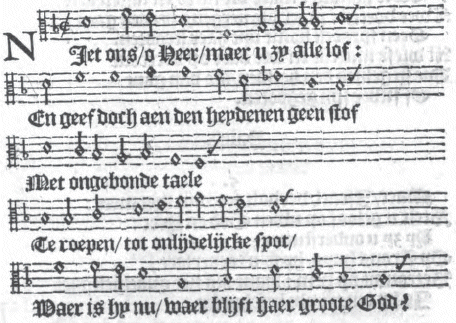 Niet ons/o Heer/maer u zy alle lof :
En geef doch aen den heydenen geen stof
Met ongebonde taele
Te roepen/ tot onlijdelijcke spot/
Waer is hy nu/ waer blijft haer groote God?